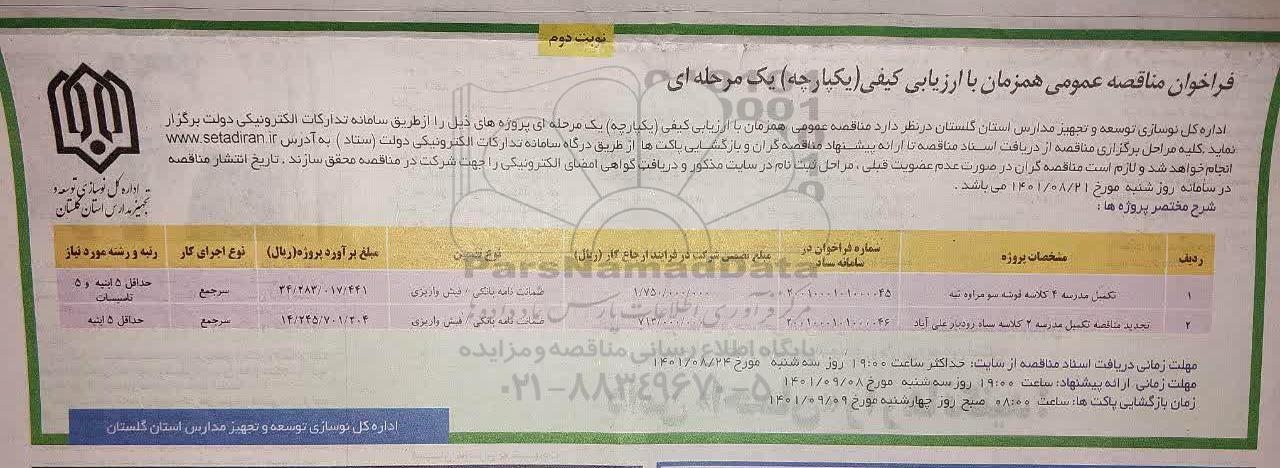 نوبت دوم
فراخوان مناقصه عمومی همزمان با ارزیابی کیفی(یکپارچه) یک مرحله ای
اداره کل نوسازی توسعه و تجهیز مدارس استان گلستان درنظر دارد مناقصه عمومی همزمان با ارزیابی کیفی (یکپارچه) یک مرحله ای پروژه های ذیل را ازطریق سامانه تدارکات الکترونیکی دولت برگزار
نماید .کلیه مراحل برگزاری مناقصه از دریافت اسناد مناقصه تا ارائه پیشنهاد مناقصه گران و بازگشایی پاکت ها از طریق درگاه سامانه تدارکات الکترونیکی دولت (ستاد ) به آدرس www.setadiran.ir
انجام خواهد شد و لازم است مناقصه گران در صورت عدم عضویت قبلی ، مراحل ثبت نام در سایت مذکور و دریافت گواهی امضای الکترونیکی را جهت شرکت در مناقصه محقق سازند . تاریخ انتشار مناقصه
در سامانه روز شنبه مورخ ۱۴۰۱/۰۸/۲۱ می باشد .
شرح مختصر پروژه ها :
اداره کل نوسازی توسعه و
تجهیز مدارس استان گلستان
ردیف مشخصات پروژه شماره فراخوان در سامانه ستاد مبلغ تضمین شرکت در فرایند ارجاع کار (ریال) نوع تضمین مبلغ برآورد پروژه(ریال) نوع اجرای کار رتبه و رشته مورد نیاز
۱ تکمیل مدرسه ۴ کلاسه قوشه سو مراوه تپه ۲۰۰۱۰۰۰۱۰۱۰۰۰۰۴۵ ۱/۷۵۰/۰۰۰/۰۰۰ ضمانت نامه بانکی / فیش واریزی ۳۴/۲۸۳/۰۱۷/۴۴۱ سرجمع حداقل ۵ ابنیه و ۵ تاسیسات
۲ تجدید مناقصه تکمیل مدرسه ۲ کلاسه سیاه رودبار علی آباد ۲۰۰۱۰۰۰۱۰۱۰۰۰۰۴۶ ۷۱۳/۰۰۰/۰۰۰ ضمانت نامه بانکی / فیش واریزی ۱۴/۲۴۵/۷۰۱/۲۰۴ سرجمع حداقل ۵ ابنیه
مهلت زمانی دریافت اسناد مناقصه از سایت: حداکثر ساعت ۱۹:۰۰ روز سه شنبه مورخ ۱۴۰۱/۰۸/۲۴
مهلت زمانی ارائه پیشنهاد: ساعت ۱۹:۰۰ روز سه شنبه مورخ ۱۴۰۱/۰۹/۰۸
زمان بازگشایی پاکت ها: ساعت ۰۸:۰۰ صبح روز چهارشنبه مورخ ۱۴۰۱/۰۹/۰۹
اداره کل نوسازی توسعه و تجهیز مدارس استان گلستان
ParsNamadData
مرکز فرآوری اطلاعات پارس نماد داده ها
پایگاه اطلاع رسانی مناقصه و مزایده
۰۲۱-۸۸۳۴۹۶۷۰-۵